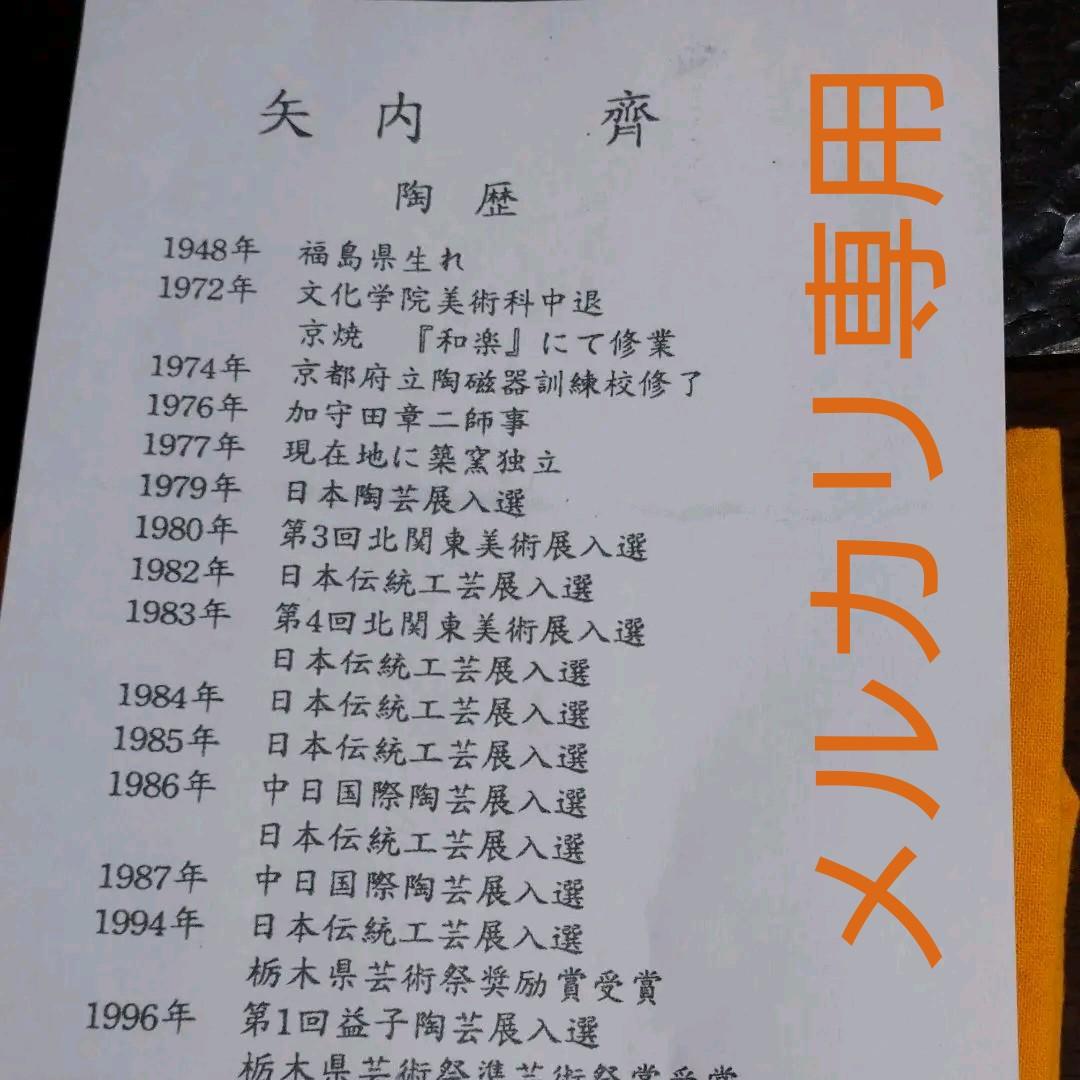 矢内 齊
陶歴
1948年 福島県生れ
1972年 文化学院美術科中退
京焼 『和楽』にて修業
1974年 京都府立陶磁器訓練校修了
1976年 加守田章二師事
1977年 現在地に築窯独立
1979年 日本陶芸展入選
1980年 第3回北関東美術展入選
1982年 日本伝統工芸展入選
1983年 第4回北関東美術展入選
日本伝統工芸展入選
1984年 日本伝統工芸展入選
1985年 日本伝統工芸展入選
1986年 中日国際陶芸展入選
日本伝統工芸展入選
1987年 中日国際陶芸展入選
1994年 日本伝統工芸展入選
栃木県芸術祭奨励賞受賞
1996年 第1回益子陶芸展入選
栃木県芸術祭準芸術祭賞受賞
メルカリ専用